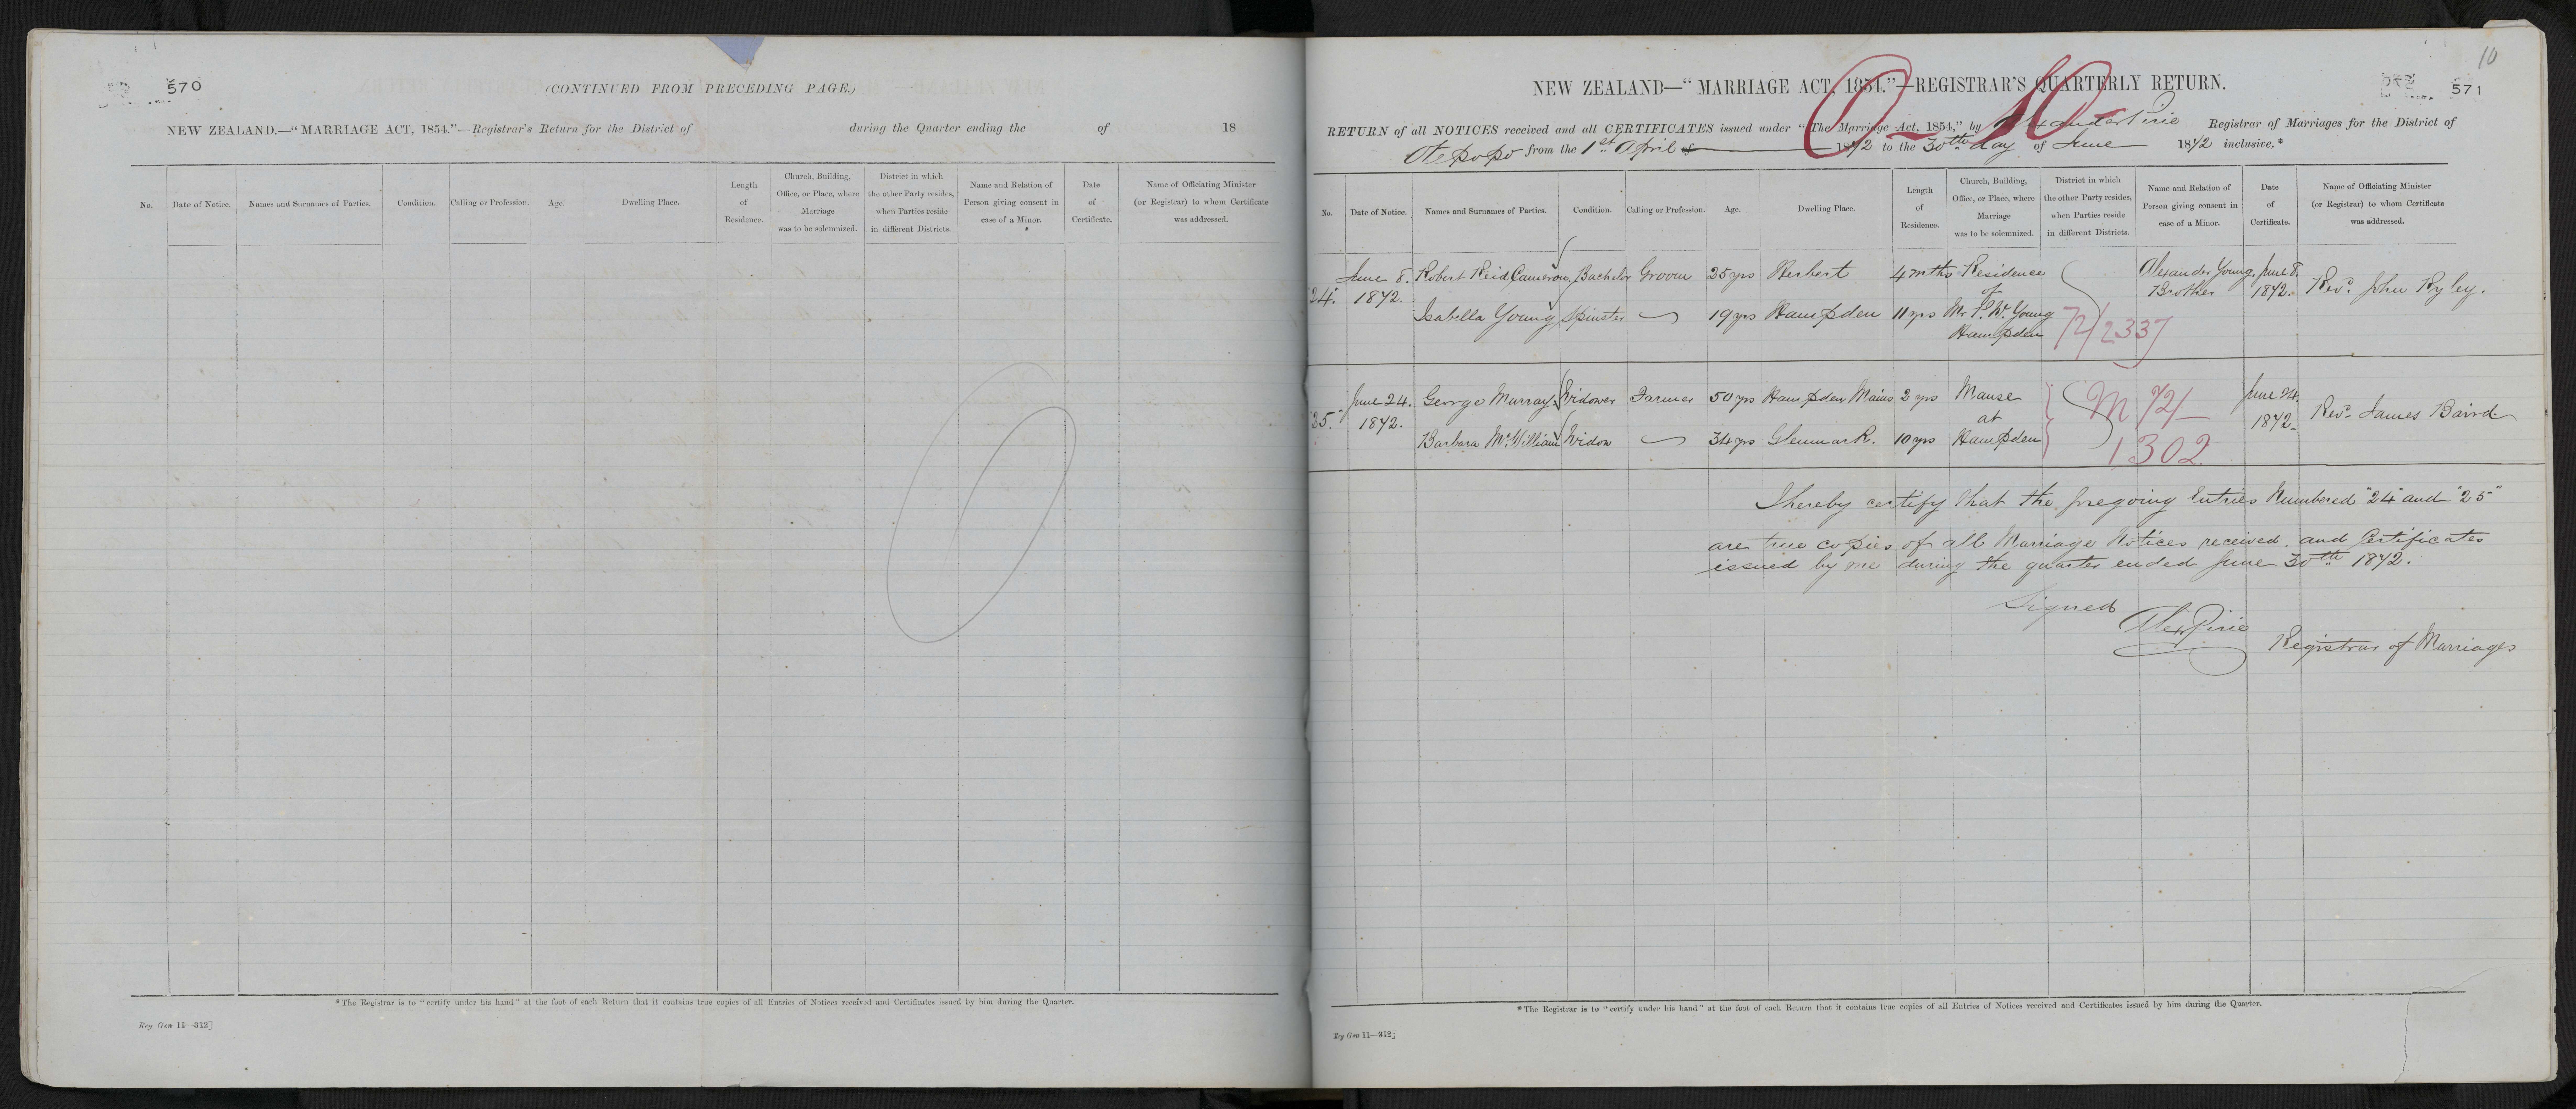 570
(CONTINUED FROM PRECEDING PAGE.)
NEW ZEALAND.—“MARRIAGE ACT, 1854.”—Registrar's Return for the District of during the Quarter ending the of 18
No. Date of Notice. Names and Surnames of Parties. Condition. Calling or Profession. Age. Dwelling Place. Length of Residence. Church, Building, Office, or Place, where Marriage was to be solemnized. District in which the other Party resides, when Parties reside in different Districts. Name and Relation of Person giving consent in case of a Minor. Date of Certificate. Name of Officiating Minister (or Registrar) to whom Certificate was addressed.
*The Registrar is to “certify under his hand” at the foot of each Return that it contains true copies of all Entries of Notices received and Certificates issued by him during the Quarter.
Reg Gen 11—312]
10
571
NEW ZEALAND—“MARRIAGE ACT, 1854.”—REGISTRAR'S QUARTERLY RETURN.
O-10
RETURN of all NOTICES received and all CERTIFICATES issued under “The Marriage Act, 1854,” by Alexander Pirie Registrar of Marriages for the District of
Otepopo from the 1st April of 1872 to the 30th day of June 1872 inclusive.*
No. Date of Notice. Names and Surnames of Parties. Condition. Calling or Profession. Age. Dwelling Place. Length of Residence. Church, Building, Office, or Place, where Marriage was to be solemnized. District in which the other Party resides, when Parties reside in different Districts. Name and Relation of Person giving consent in case of a Minor. Date of Certificate. Name of Officiating Minister (or Registrar) to whom Certificate was addressed.
June 8. Robert Reid Cameron Bachelor Groom 25 yrs Herbert 4 mths Residence Alexander Young June 8.
24. 1872. of Brother 1872. Revd. John Ryley.
Isabella Young Spinster 19 yrs Hampden 11 yrs Mr Young
Hampden 72/2337
June 24. George Murray Widower Farmer 50 yrs Hampden Mains 2 yrs Manse M 72/ June 24.
25. 1872. at 1872 Revd. James Baird
Barbara McWilliam Widow 34 yrs Glenmark. 10 yrs Hampden 1302
I hereby certify that the foregoing Entries Numbered "24" and "25"
are true copies of all Marriage Notices received and Certificates
issued by me during the quarter ended June 30th 1872.
Signed
Alex Pirie
Registrar of Marriages
*The Registrar is to “certify under his hand” at the foot of each Return that it contains true copies of all Entries of Notices received and Certificates issued by him during the Quarter.
Reg Gen 11—312]